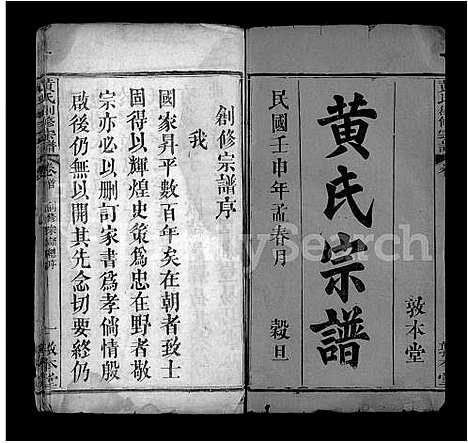 敦本堂
黃氏宗譜
民國壬申年孟春月 穀旦
創修宗譜序
我
國家昇平數百年矣在朝者致士
固得以輝煌史策為忠在野者敬
宗亦必以刪訂家書為孝倘情殷
啟後仍無以開其先念切要終仍
黃氏創修宗譜
卷首
創修宗譜序
一
敦本堂
FamilySearch